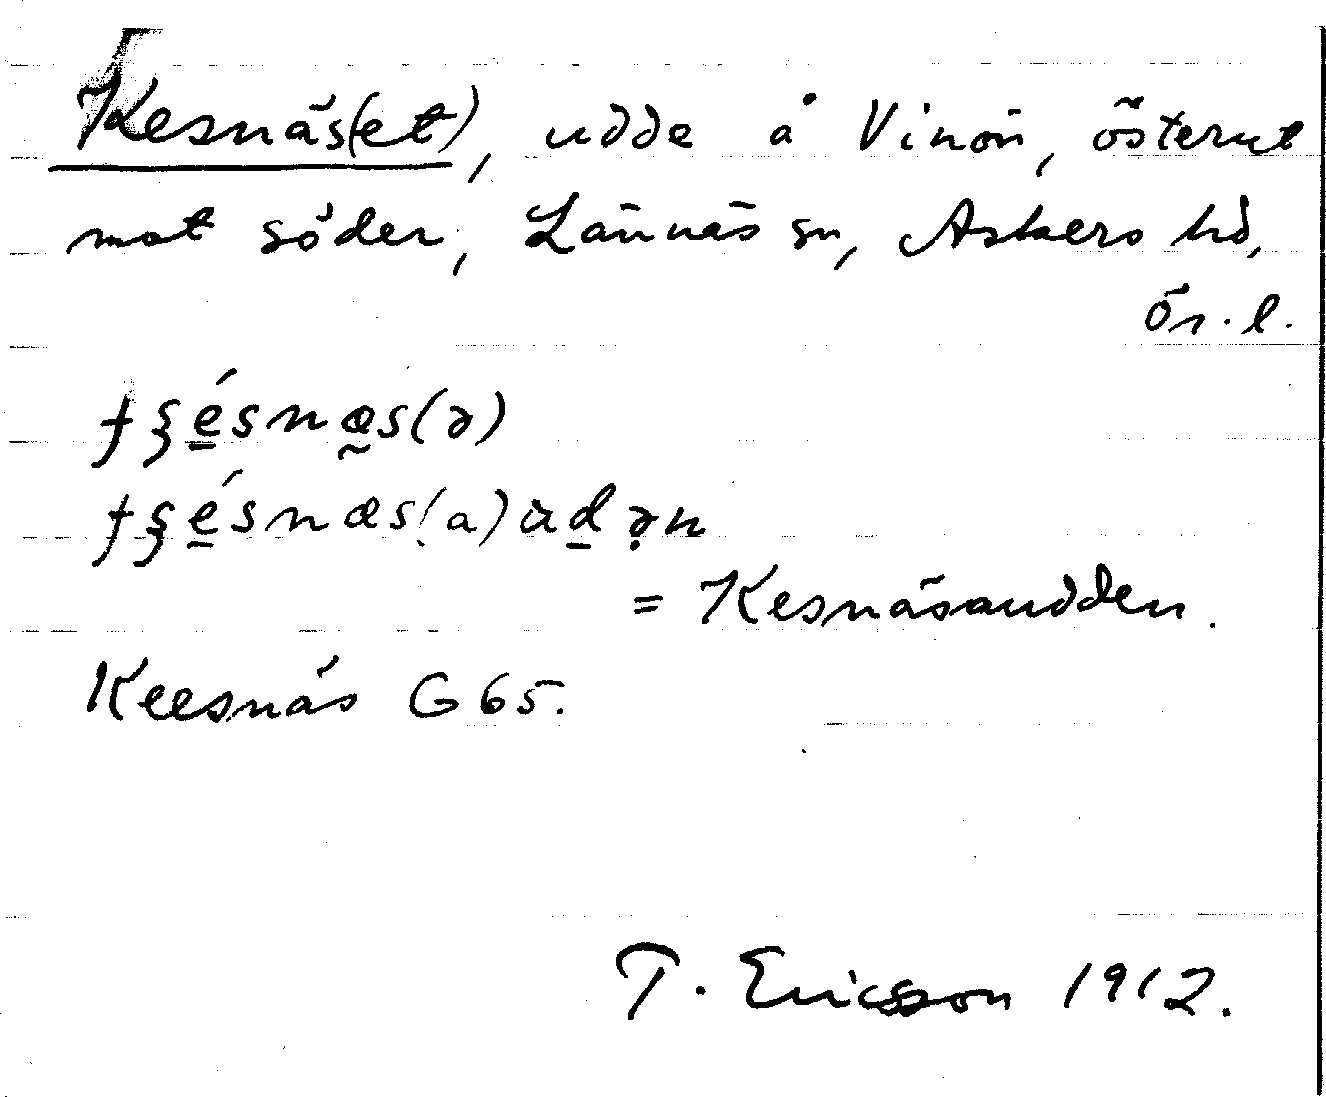 Kesnäs(et), udde å Vinön, österut
mot söder, Lännäs sn, Askers hd,
Ör. l.
ƭʂé̲snæ̰s(ə)
ƭʂé̲snæs(a)ùd̲ə̣n
= Kesnäsaudden.
Keesnäs G 65.
T. Ericsson 1912.